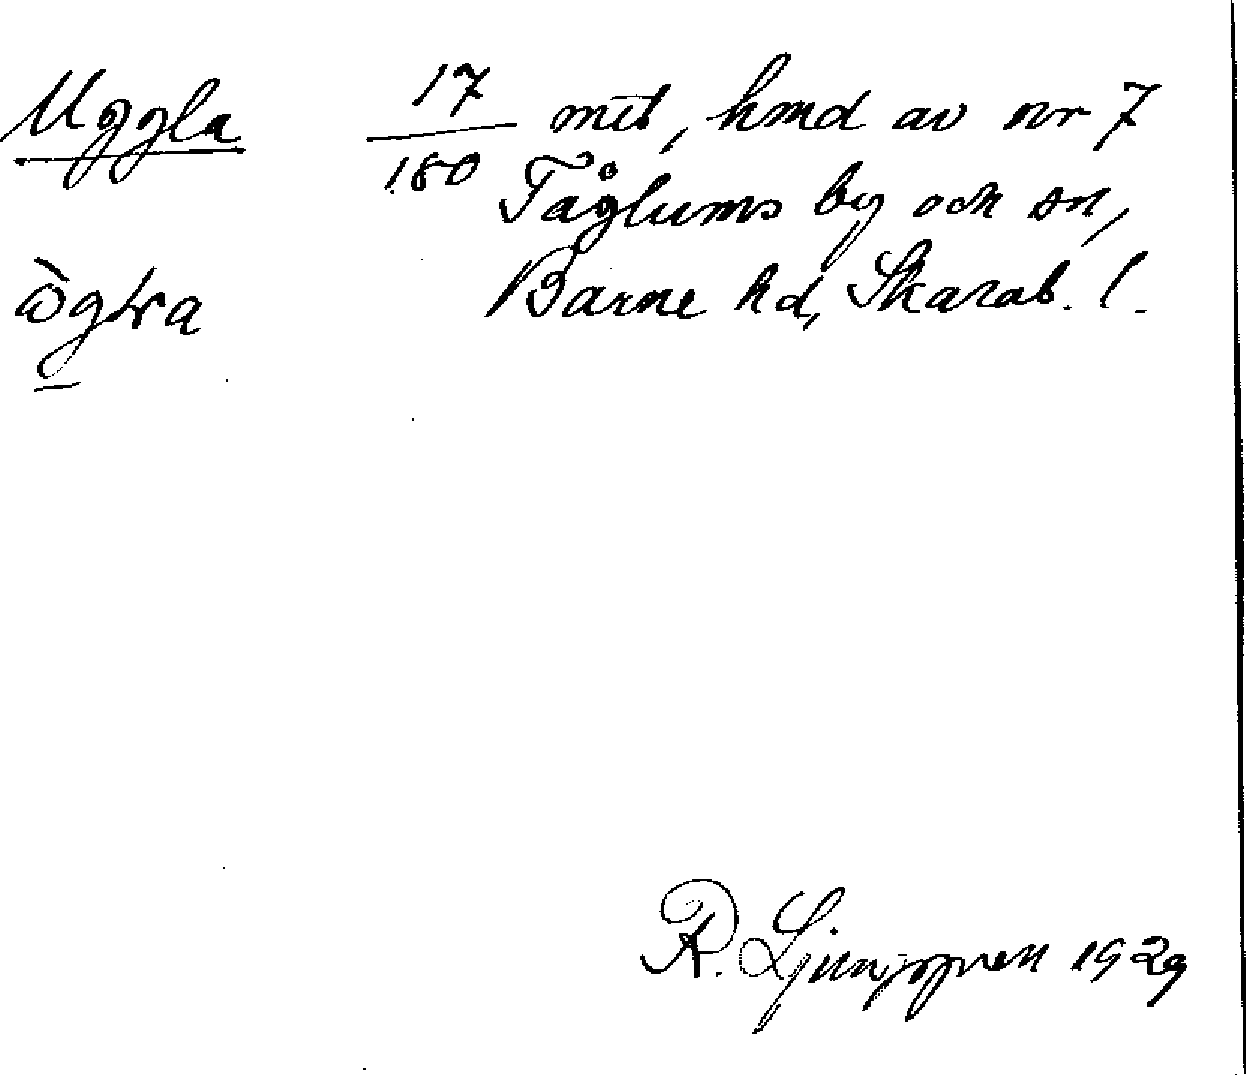 Uggla 17/180 mtl, hmd av nr 7
Tåglums by och sn,
Barne hd, Skarab. l.
R. Ljunggren 1929